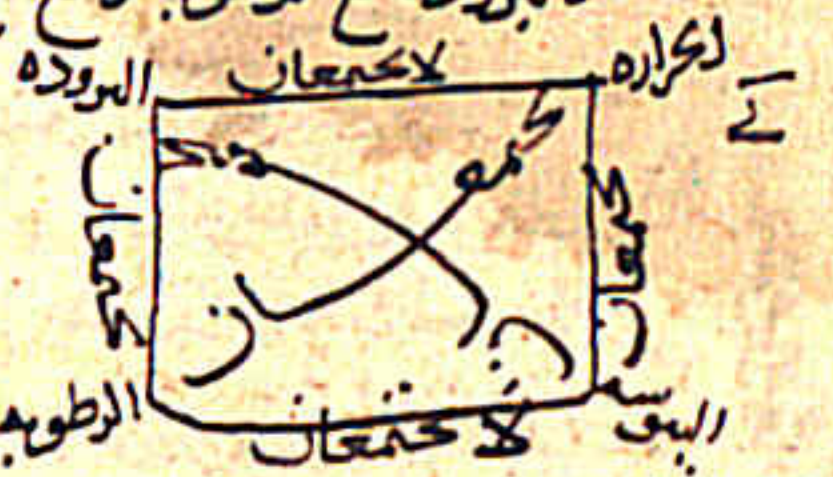 الحراره لا يجتمعان البروده
يجتمعان يجتمعان
يجتمعان يجتمعان
اليبوسه لا يجتمعان الرطوبه